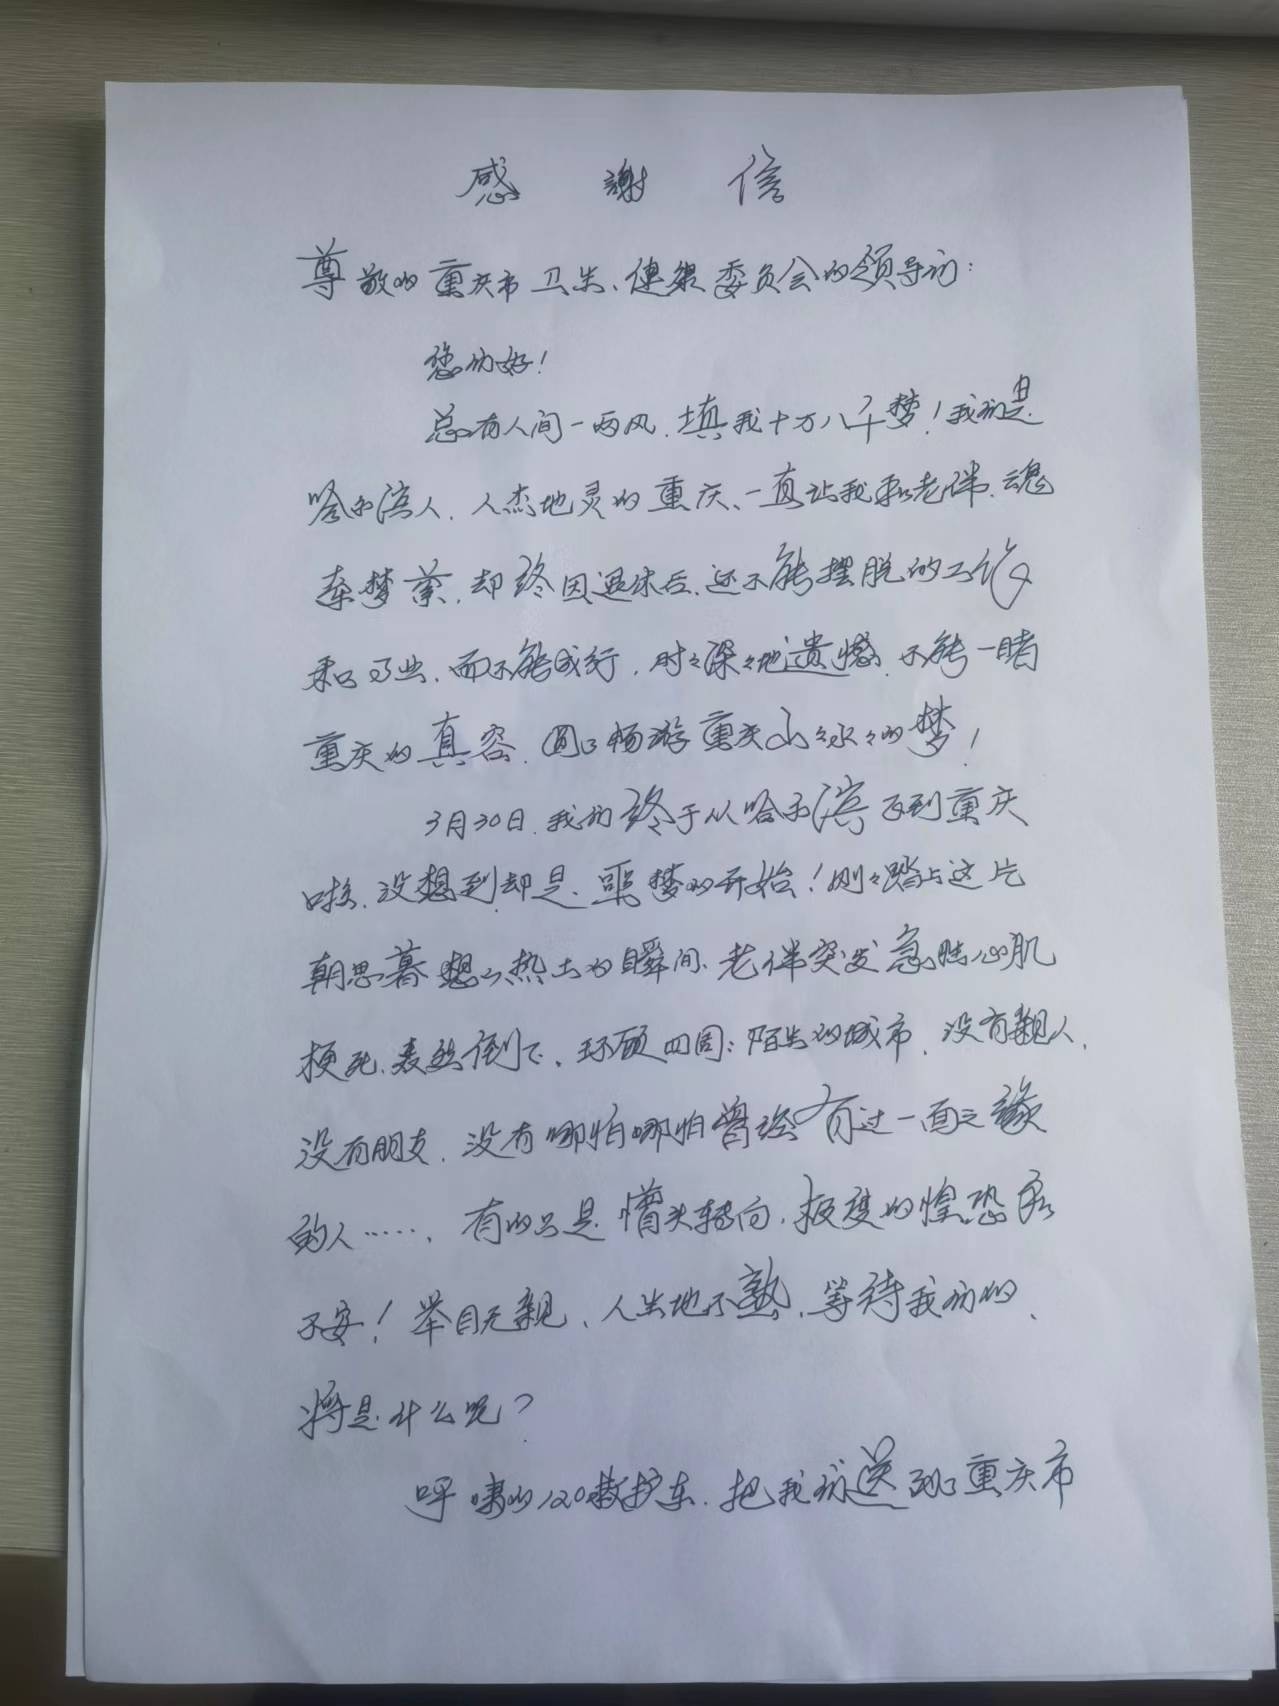 感謝信
尊敬的重庆市卫生、健康委员会的领导们：
您们好！
总有人间一两风，填我十万八千梦！我们是
哈尔滨人，人杰地灵的重庆、一直让我和老伴、魂
牵梦萦，却终因退休后，还不能摆脱的工作
和事业、而不能成行，时々深々地遗憾、不能一睹
重庆的真容，圆了畅游重庆山々水々的梦！
3月30日，我们终于从哈尔滨飞到重庆
啦，没想到却是、噩梦的开始！刚々踏上这片
朝思暮想的热土的瞬间、老伴突发急性心肌
梗死、轰然倒下、环顾四周：陌生的城市、没有親人、
没有朋友、没有哪怕哪怕曾经有过一面之缘
的人……，有的只是懵头转向，极度的惶恐和
不安！举目无親、人生地不熟，等待我们的、
将是什么呢？
呼啸的120救护车，把我们送到了重庆市